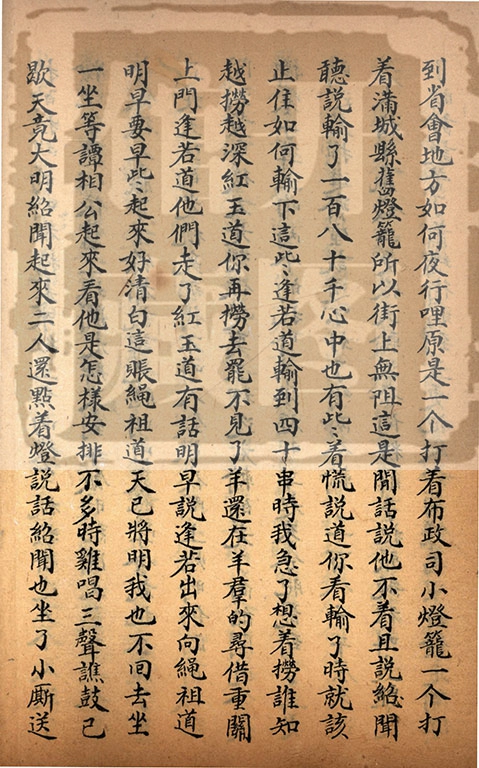 到省會地方如何夜行哩原是一个打着布政司小燈籠一个打
着滿城縣舊燈籠所以街上無阻這是閒話說他不着且說紹聞
聽說輸了一百八十千心中也有些着慌說道你看輸了時就該
止住如何輸下這些逢若道輸到四十串時我急了想着撈誰知
越撈越深紅玉道你再撈去罷不見了羊還在羊羣的尋借重關
上門逢若道他們走了紅玉道有話明早說逢若出來向繩祖道
明早要早些起來好清白這賬繩祖道天已將明我也不回去坐
一坐等譚相公起來看他是怎樣安排不多時雞唱三聲譙鼓已
歇天竟大明紹聞起來二人還點着燈說話紹聞也坐了小廝送